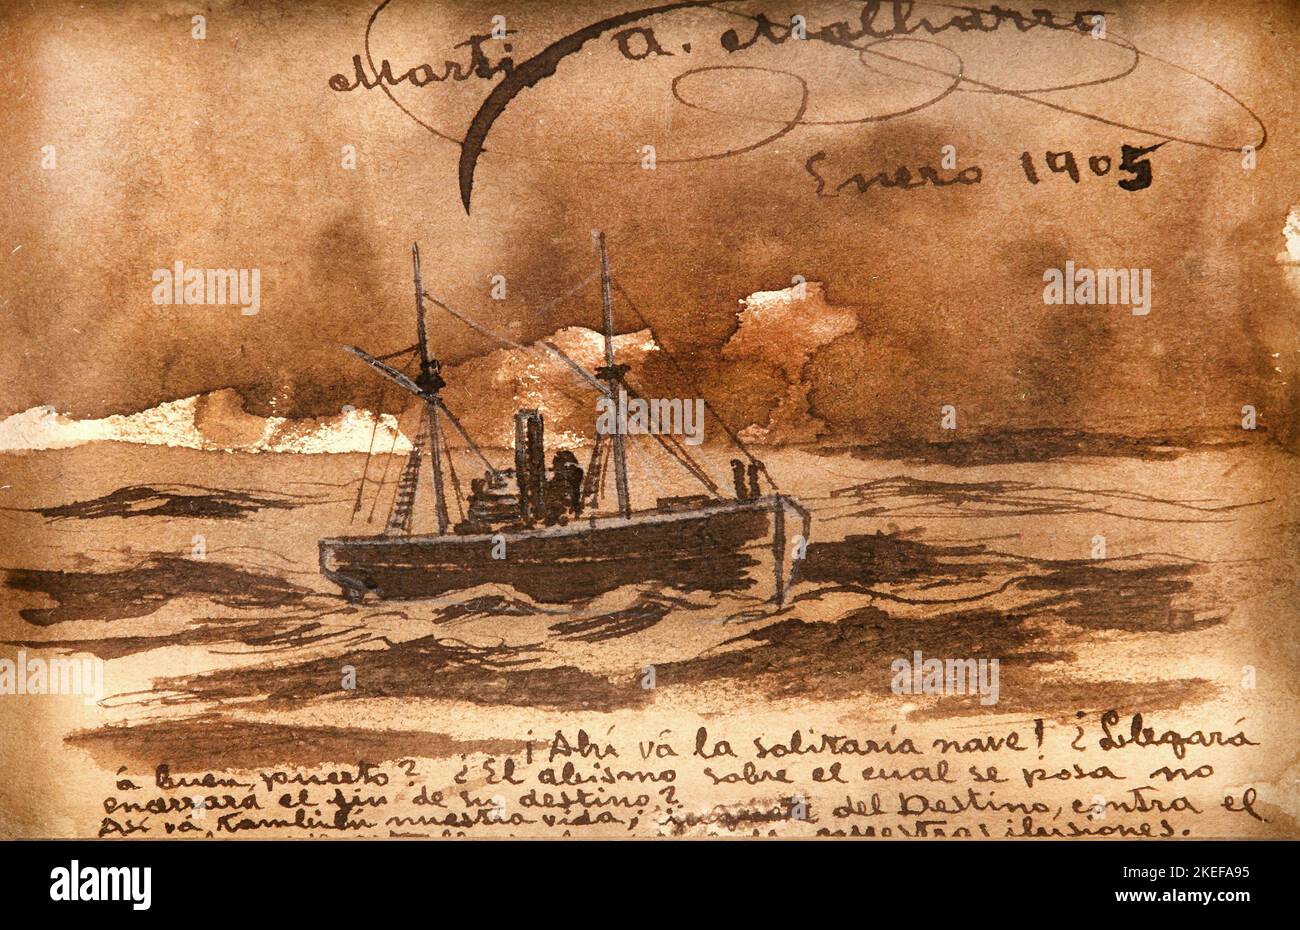 Martin A. Malharro
Enero 1905
¡Ahí vá la solitaria nave! ¿Llegará
á buen puerto? ¿El abismo sobre el cual se posa no
enarrara el fin de su destino?
Así vá también nuestra vida, juguete del Destino, contra el
nuestras ilusiones.
alamy
Image ID: 2KEFA95
www.alamy.com